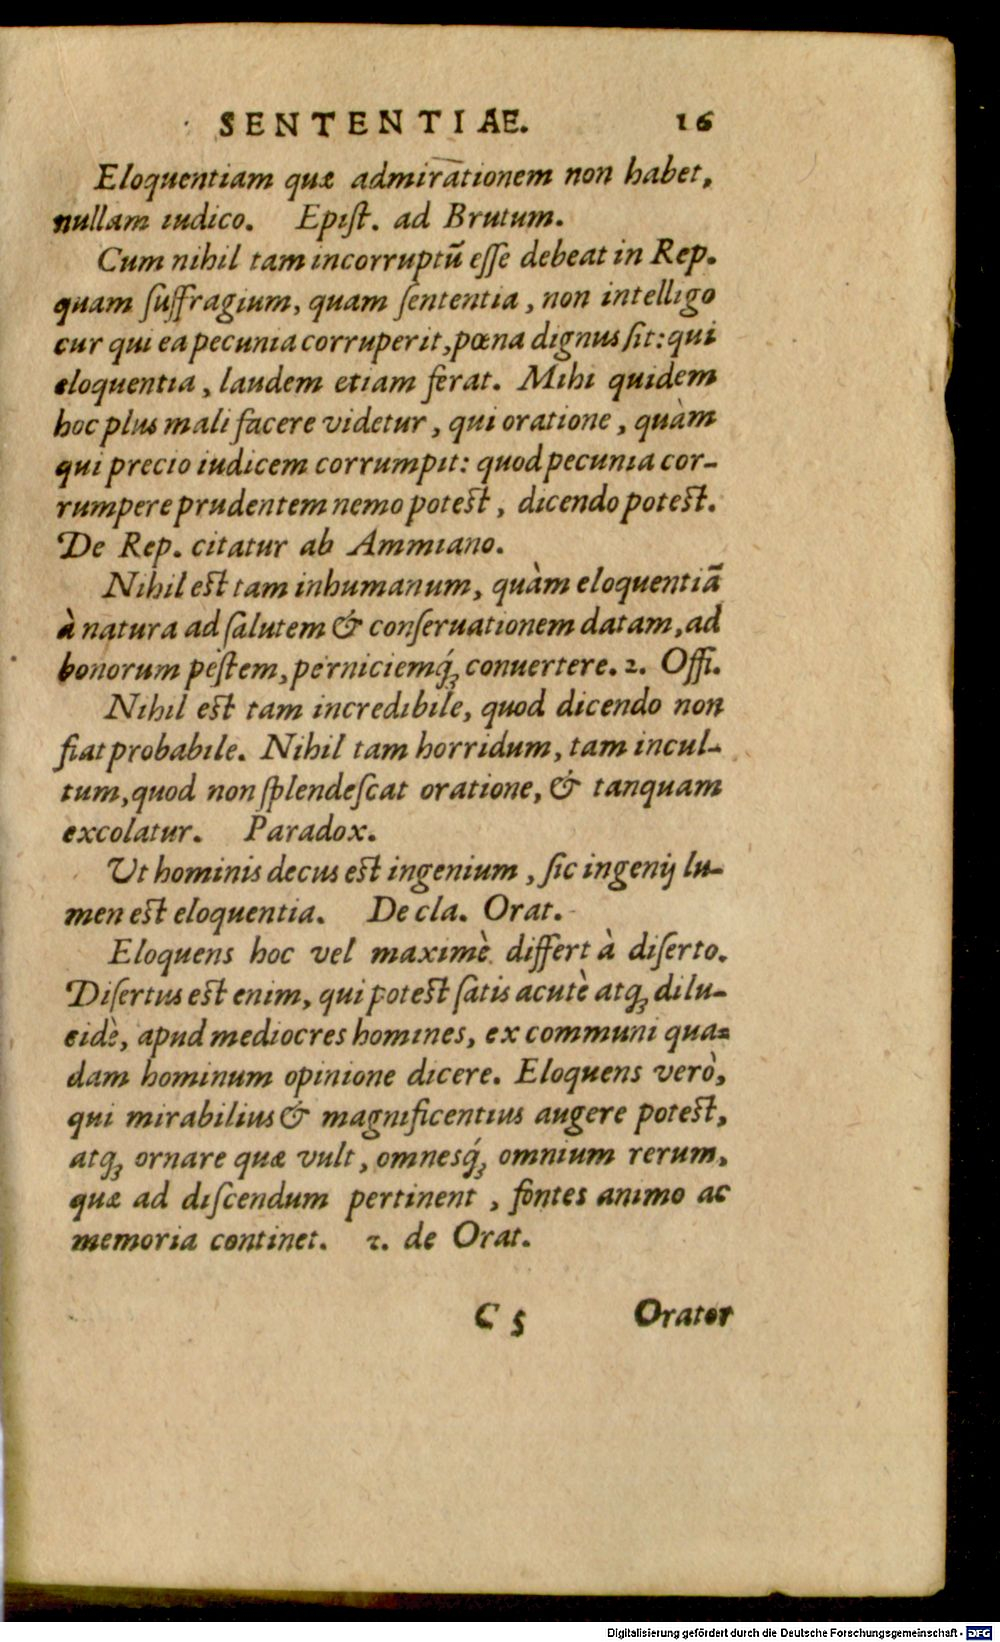 SENTENTIAE. 16
Eloquentiam quæ admirationem non habet,
nullam iudico. Epist. ad Brutum.
Cum nihil tam incorruptū esse debeat in Rep.
quam suffragium, quam sententia, non intelligo
cur qui ea pecunia corruperit, pœna dignus sit: qui
eloquentia, laudem etiam ferat. Mihi quidem
hoc plus mali facere videtur, qui oratione, quàm
qui precio iudicem corrumpit: quod pecunia cor-
rumpere prudentem nemo potest, dicendo potest.
De Rep. citatur ab Ammiano.
Nihil est tam inhumanum, quàm eloquentiā
à natura ad salutem & conseruationem datam, ad
bonorum pestem, perniciemq́ꝫ conuertere. 2. Offi.
Nihil est tam incredibile, quod dicendo non
fiat probabile. Nihil tam horridum, tam incul-
tum, quod non splendescat oratione, & tanquam
excolatur. Paradox.
Ut hominis decus est ingenium, sic ingenij lu-
men est eloquentia. De cla. Orat.
Eloquens hoc vel maximè differt à diserto.
Disertus est enim, qui potest satis acutè atqꝫ dilu-
cidè, apud mediocres homines, ex communi qua-
dam hominum opinione dicere. Eloquens verò,
qui mirabilius & magnificentius augere potest,
atqꝫ ornare quæ vult, omnesq́ꝫ omnium rerum,
quæ ad discendum pertinent, fontes animo ac
memoria continet. 2. de Orat.
C 5 Orator
Digitalisierung gefördert durch die Deutsche Forschungsgemeinschaft - DFG